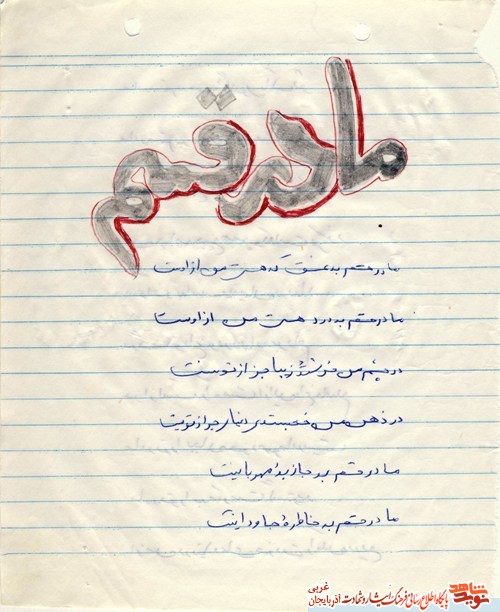 مادر قسم
مادر قسم به عشق که هستی من از اوست
مادر قسم به درد هستی من از اوست
در چشم من فرشتهٔ زیبا جز از تو نیست
در ذهن من دنیا جدا از تو نیست
مادر قسم به جاذبهٔ مهربانیت
مادر قسم به خاطرهٔ جاودانیت
پایگاه اطلاع رسانی فرهنگ ایثار و شهادت آذربایجان غربی
نوید شاهد